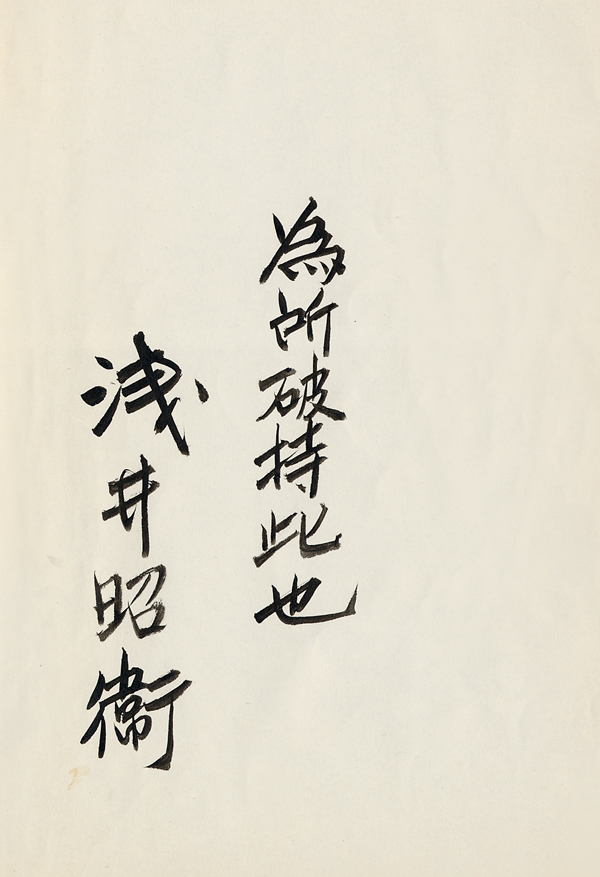 為所破持此也
浅井昭衞